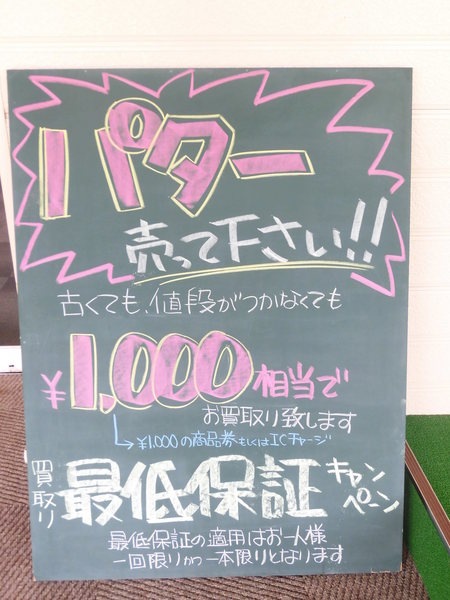 パター
売って下さい!!
古くても、値段がつかなくても
¥1,000相当で
お買取り致します
→¥1,000の商品券もしくはICチャージ
買取り最低保証キャンペーン
最低保証の適用はお一人様
一回限りかつ一本限りとなります